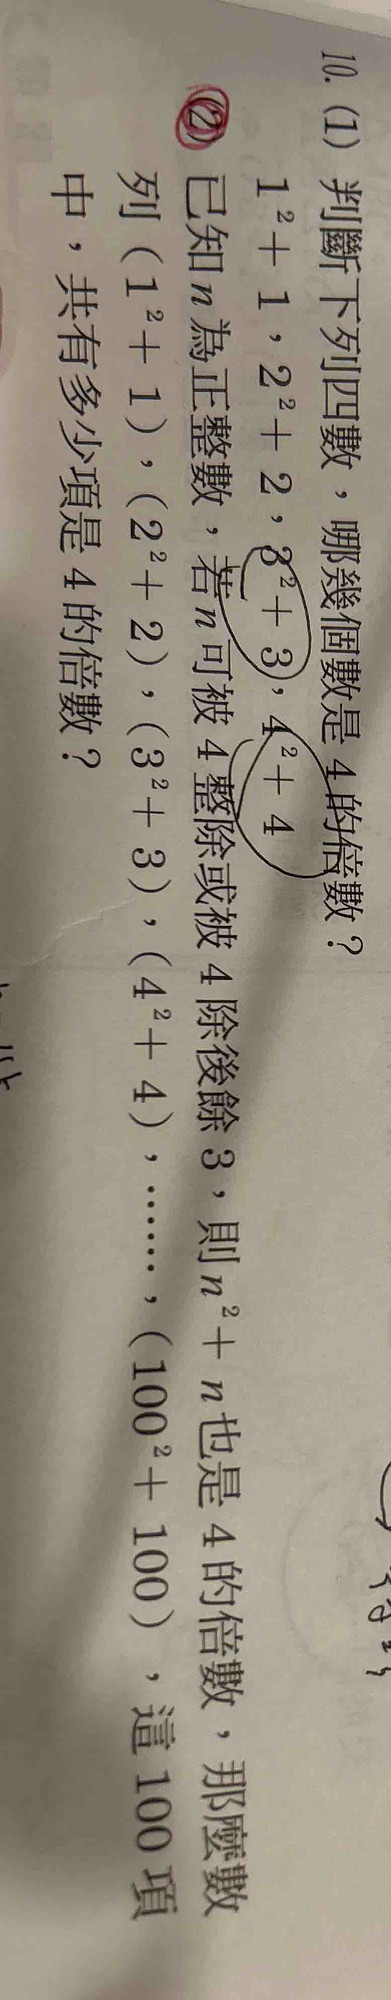 10. (1) 判斷下列四數，哪幾個數是 4 的倍數？
1²+1，2²+2，3²+3，4²+4
(2) 已知 n 為正整數，若 n 可被 4 整除或被 4 除後餘 3，則 n²+n 也是 4 的倍數，那麼數
列 (1²+1)，(2²+2)，(3²+3)，(4²+4)，……，(100²+100)，這 100 項
中，共有多少項是 4 的倍數？